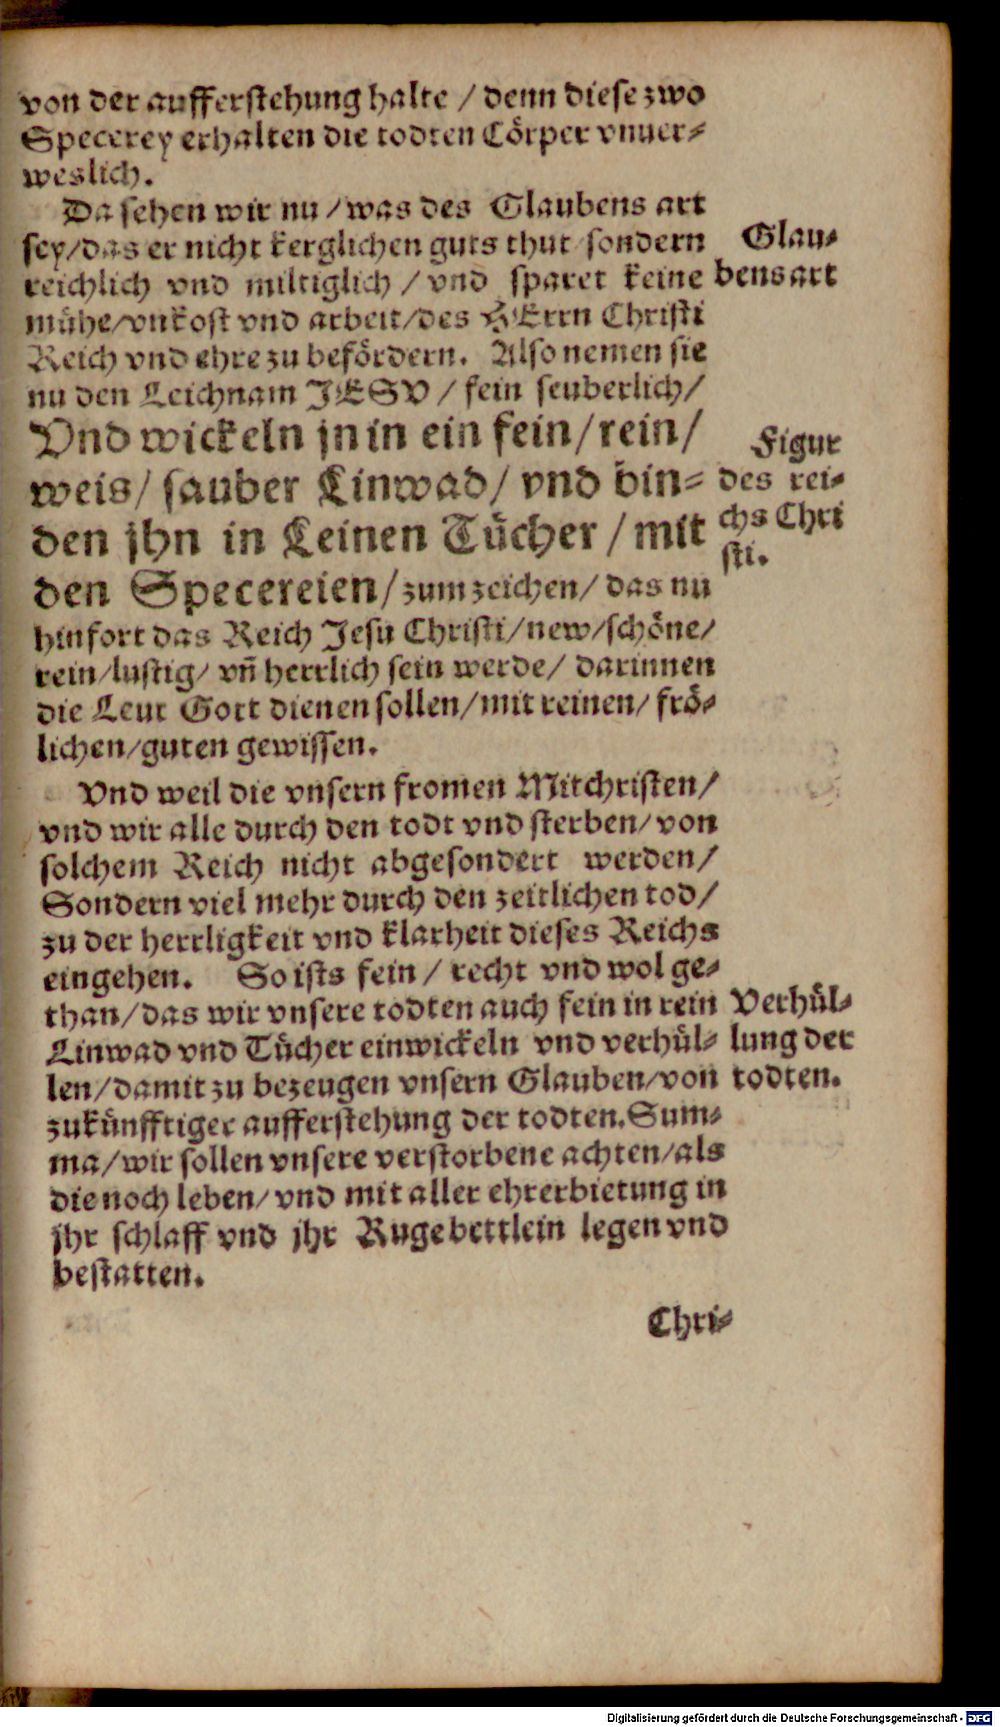 von der aufferstehung halte / denn diese zwo
Specerey erhalten die todten Cörper vnuer-
weslich.
Da sehen wir nu / was des Glaubens art
sey / das er nicht kerglichen guts thut / sondern
reichlich vnd miltiglich / vnd sparet keine
mühe / vnkost vnd arbeit / des HErrn Christi
Reich vnd ehre zu befördern. Also nemen sie
nu den Leichnam JESV / fein seuberlich /
Vnd wickeln jn in ein fein / rein /
weis / sauber Linwad / vnd bin-
den jhn in Leinen Tücher / mit
den Specereien / zum zeichen / das nu
hinfort das Reich Jesu Christi / new / schöne /
rein / lustig / vñ herrlich sein werde / darinnen
die Leut Gott dienen sollen / mit reinen / frö-
lichen / guten gewissen.
Vnd weil die vnsern fromen Mitchristen /
vnd wir alle durch den todt vnd sterben / von
solchem Reich nicht abgesondert werden /
Sondern viel mehr durch den zeitlichen tod /
zu der herrligkeit vnd klarheit dieses Reichs
eingehen. So ists fein / recht vnd wol ge-
than / das wir vnsere todten auch fein in rein
Linwad vnd Tücher einwickeln vnd verhül-
len / damit zu bezeugen vnsern Glauben / von
zukünfftiger aufferstehung der todten. Sum-
ma / wir sollen vnsere verstorbene achten / als
die noch leben / vnd mit aller ehrerbietung in
jhr schlaff vnd jhr Rugebettlein legen vnd
bestatten.
Chri-
Glau-
bens art
Figur
des rei-
chs Chri
sti.
Verhül-
lung der
todten.
Digitalisierung gefördert durch die Deutsche Forschungsgemeinschaft - DFG